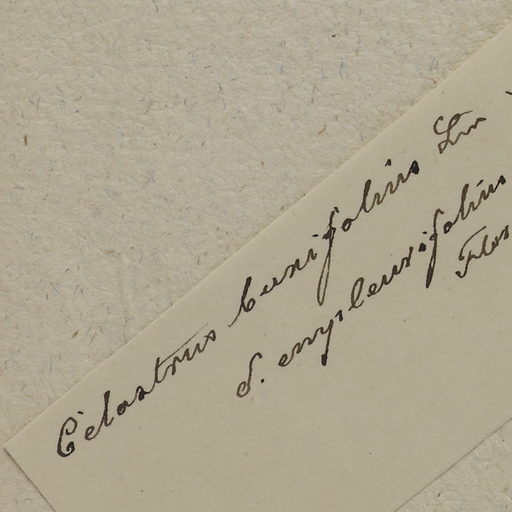 Celastrus buxifolius Lin
δ. empleurifolius
Flor